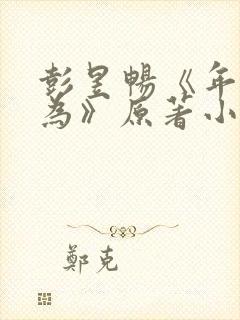 彭昱暢《年
為》原著小
鄭克